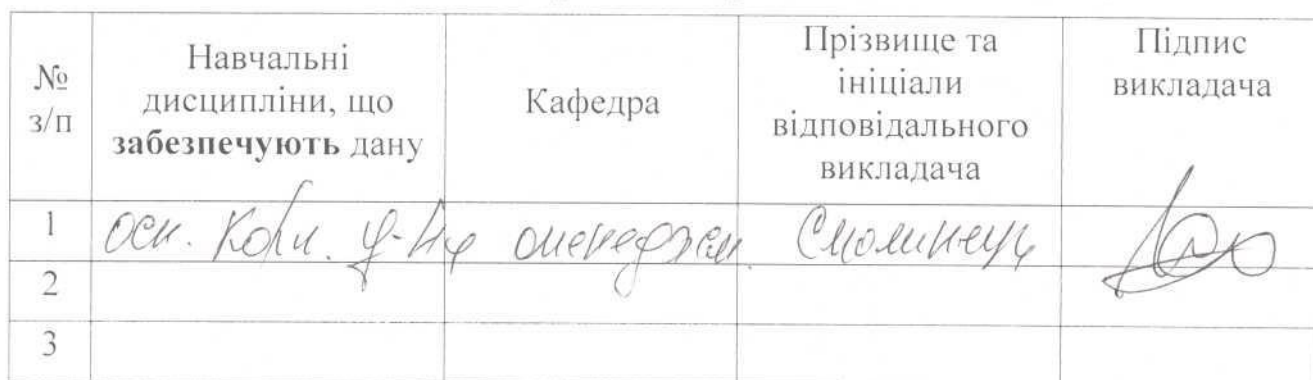 № з/п
Навчальні дисципліни, що забезпечують дану
Кафедра
Прізвище та ініціали відповідального викладача
Підпис викладача
1 осн. корп. у-ня менеджм. Смолинець
2
3